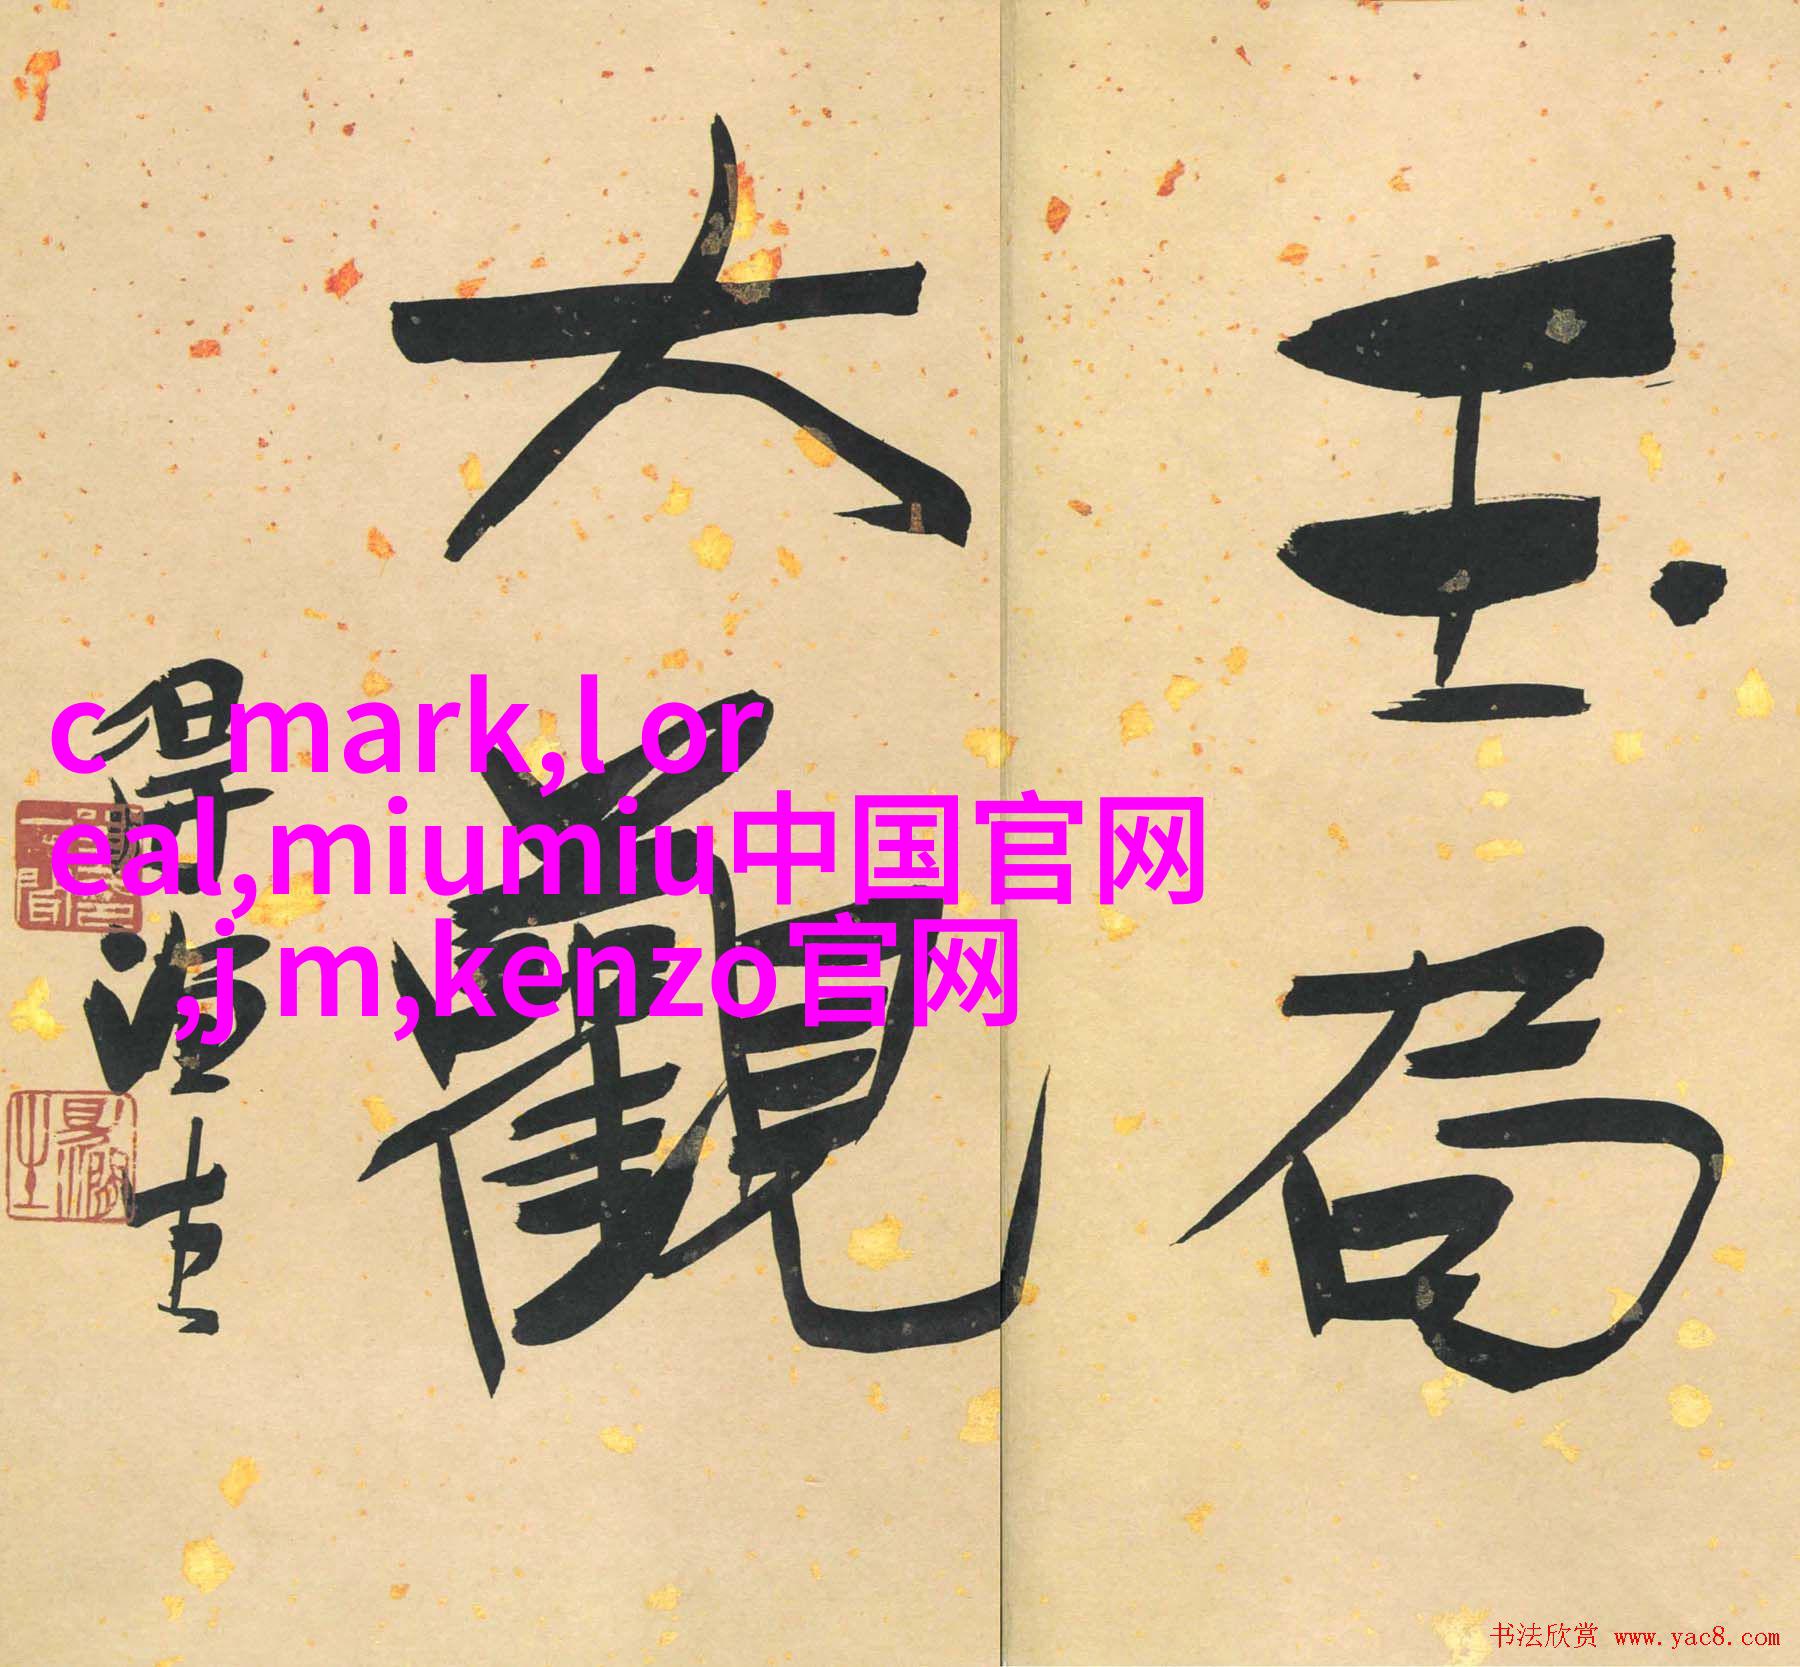 玉局
大觀
c mark,l or
eal,miumiu中国官网
,j m,kenzo官网
书法欣赏 www.yac8.com